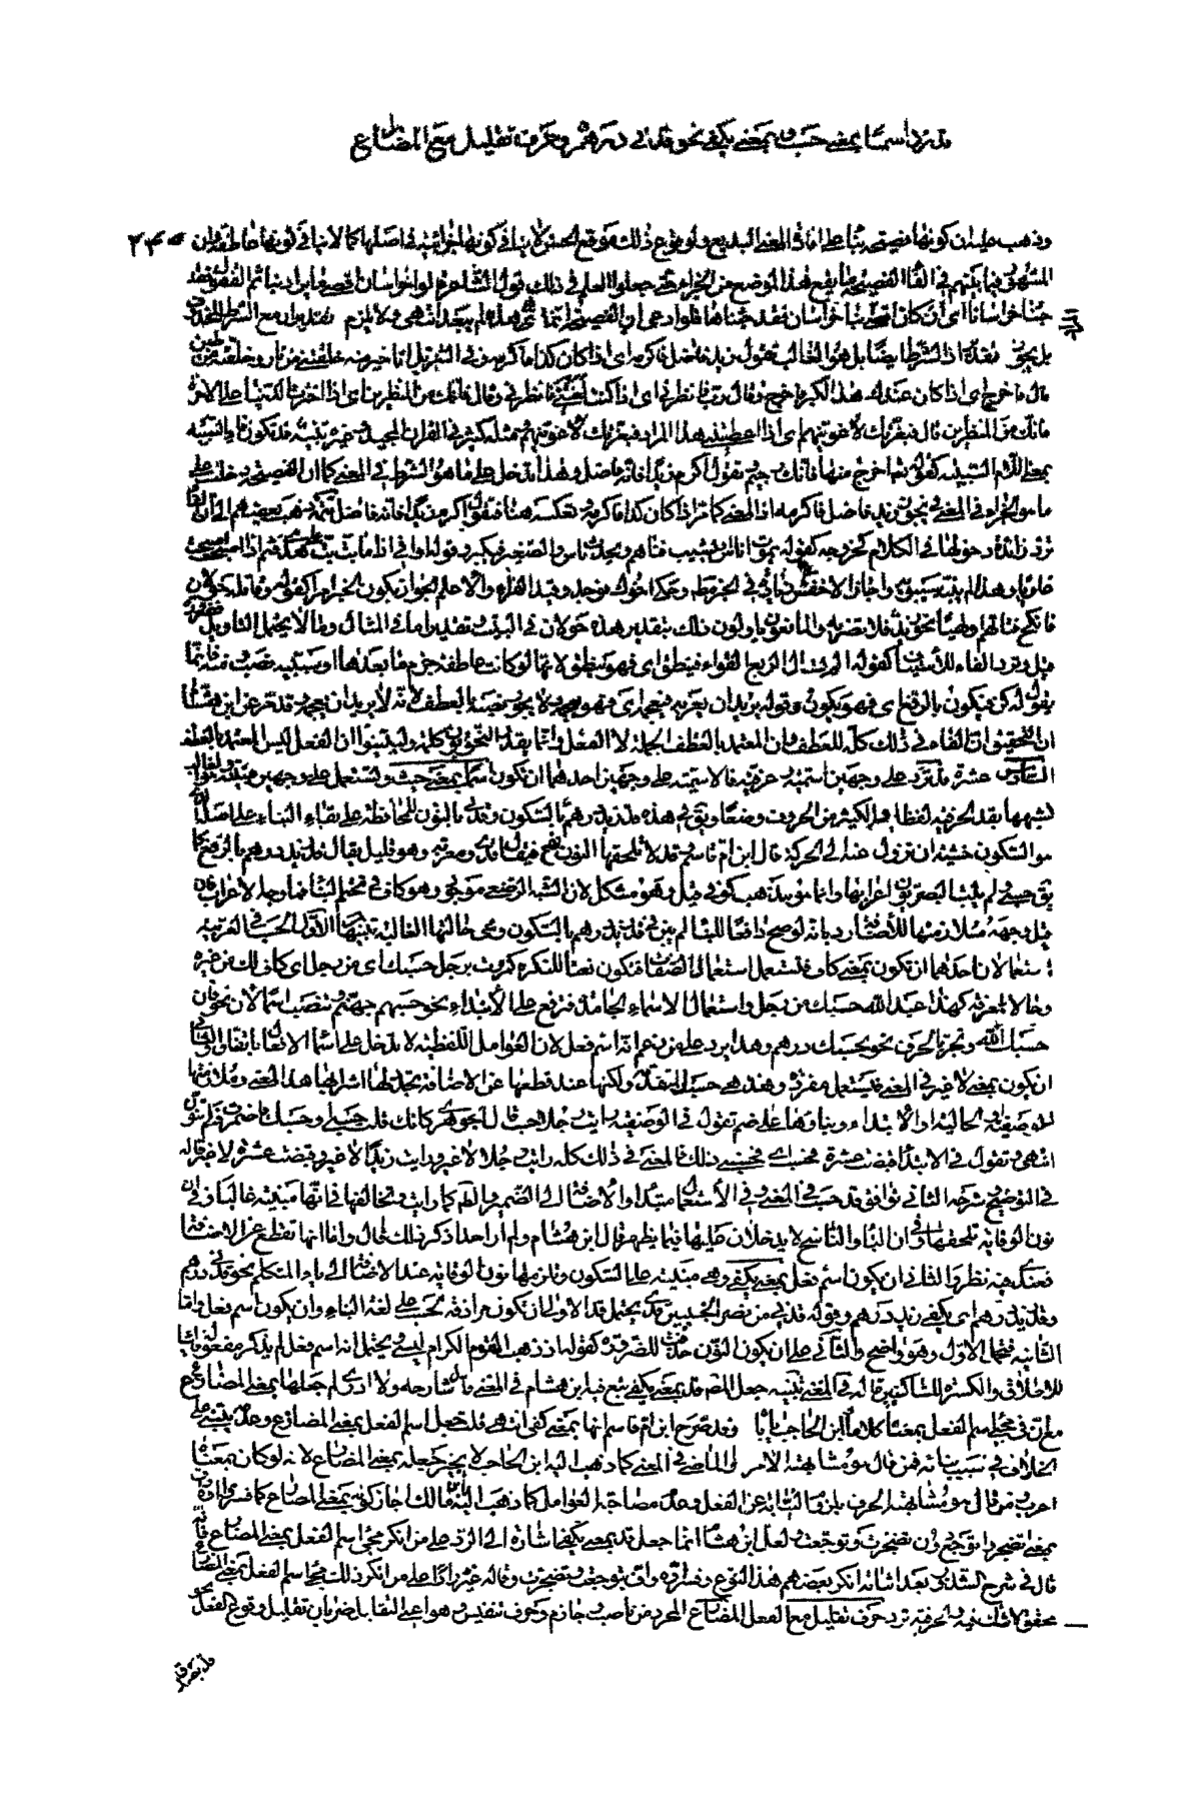 قد ترد اسما بمعنى حسب وبمعنى يكفى نحو قدنى درهم وحرف تقليل مع المضارع
وذهب كونها فصيحة بناء على المعنى البديع ولو وقوع ذلك موقع الحسن لا ينافى كونها جزائية فى اصلها كما لا ينافى كونها عاطفة وان ٢٣٠
المشهور فيما بينهم فى الفاء الفصيحة ما يقع هذا الموضع من الجزاء حتى جعلوا العلم فى ذلك قول الشاعر قالوا خراسان اقصى ما يراد بنا ثم القفول فقد
جئنا خراسانا اى ان كان اقصى بنا خراسان فقد جئناها فلو ادعى ان الفصيحة انما هذا لم يبعد انتهى ولا يلزم تقديران مع الشرط
بل يجوز تقدير اذا الشرط ايضا بل هو الغالب تقول زيد فاضل فاكرمه اى اذا كان كذا فاكرمه وفى التنزيل انا خير منه خلقتنى من نار وخلقته من طين
قال فاخرج اى اذا كان عندك هذا الكبر فاخرج وقال رب فانظرنى اى اذا كنت لعنتنى فانظرنى وقال فانك من المنظرين اى اذا اخترت الدنيا على الاخرة
فانك من المنظرين قال فبعزتك لاغوينهم اى اذا اعطيتنى هذا المراد فبعزتك لاغوينهم ومثله كثير فى القران المجيد وغيره تنبيه قد تكون فاء السببية
بمعنى اللام السببية كقوله تعالى اخرج منها فانك رجيم تقول اكرم زيدا فانه فاضل وهذا تدخل على ما هو الشرط فى المعنى كما ان الفصيحة دخلت على
ما هو الجزاء فى المعنى نحو زيد فاضل فاكرمه اذ المعنى كما مر اذا كان كذا فاكرمه وتعكسه هنا فتقول اكرم زيدا فانه فاضل تتمة ذهب بعضهم الى ان الفاء
ترد زائدة دخولها فى الكلام كخروجه كقوله يموت اناس او يشيب فتاهم ويحدث ناس والصغير فيكبر وقوله ارانى اذا ما بت بت على هوى فثم اذا اصبحت اصبحت
غاديا وهذا لم يثبته سيبويه واجاز الاخفش زيادته فى الخبر مطلقا وحكى اخوك فوجد وقيد الفراء والاعلم الجواز بكون الخبر امرا كقوله وقائلة خولان
فانكح فتاتهم ونهيا نحو زيد فلا تضربه والمانعون ياولون ذلك بتقدير هذه خولان فى البيت وتقدير اما فى المثال ومما لا يحتمل التاويل
قيل وترد الفاء للاستيناف كقوله الم تسال الربع القواء فينطق اى فهو ينطق لانها لو كانت عاطفة جزم ما بعدها او سببية نصب ومنه فانما
يقول له كن فيكون بالرفع اى فهو يكون وقوله يريد ان يعربه فيعجمه اى فهو يعجمه ولا يجوز نصبه بالعطف لانه لا يريد ان يعجمه وقد مر عن ابن هشام
ان التحقيق ان الفاء فى ذلك كله للعطف وان المعتمد بالعطف الجملة لا الفعل وانما يقدر النحويون كلمة هو ليبينوا ان الفعل ليس المعتمد بالعطف
السادس عشرة قد ترد على وجهين اسمية وحرفية فالاسمية على وجهين احدهما ان تكون اسما بمعنى حسب وتستعمل على وجهين مبنية وهو الغالب
لشبهها بقد الحرفية لفظا ولكثير من الحروف وضعا ويقال فى هذه قد زيد درهم بالسكون وقدنى بالنون للمحافظة على بقاء البناء على اصله الذى
هو السكون خشية ان تزول عنه الى الحركة قال ابن ام قاسم وقد لا تلحقها النون فيقال قدى ومعربة وهو قليل يقال قد زيد درهم بالرفع كما
يقال حسبه لم يثبت البصريون اعرابها وانما هو مذهب كوفى قيل وهو مشكل لان الشبه الوضعى موجود وهو كاف فى تحتم البناء فما وجه الاعراب فان
قيل وجهه ملازمتها للاضافة رد بانه لو صح دافعا للبناء لم يبن فى قد زيد درهم بالسكون وهى حالتها الغالبة تنبيه الاول لحسب فى العربية
استعمالان احدهما ان تكون بمعنى كاف فتستعمل استعمال الصفات فتكون نعتا للنكرة كمررت برجل حسبك اى من رجل اى كاف لك من غيره
وحالا لمعرفة كهذا عبد الله حسبك من رجل واستعمال الاسماء الجامدة فترفع على الابتداء نحو حسبهم جهنم وتنصب اسما لان نحو فان
حسبك الله وتجر بالحرف نحو بحسبك درهم وهذا يرد على من زعم انه اسم فعل لان العوامل اللفظية لا تدخل على اسماء الافعال باتفاق الثانى
ان يكون بمعنى لا غير فى المعنى فتستعمل مفردة وهذه هى حسب المتقدمة ولكنها عند قطعها عن الاضافة تجدد لها اشرابها هذا المعنى وملازمتها
للوصفية او الحالية او الابتداء وبناؤها على ضم تقول فى الوصفية رايت رجلا حسب قال الجوهرى كانك قلت حسبى او حسبك فاضمرت ذلك ولم تنون
انتهى وتقول فى الابتداء قبضت عشرة فحسب اى فحسبى ذلك فالمعنى فى ذلك كله رايت رجلا لا غير ورايت زيدا لا غير وقبضت عشرة لا غير قاله
فى التوضيح وشرحه الثانى توافق قد حسب فى المعنى وفى الاستعمال مبتدا والاضافة الى الضمير والظاهر كما رايت وتخالفها فى انها مبنية غالبا وفى ان
نون الوقاية تلحقها وفى ان الباء والناسخ لا يدخلان عليها فيما يظهر قال ابن هشام ولم ار احدا ذكر ذلك قال واما انها تقطع عن الاضافة
فعندى فيه نظر والثانى ان يكون اسم فعل بمعنى يكفى وهى مبنية على السكون وتلزمها نون الوقاية عند الاضافة الى ياء المتكلم نحو قدنى درهم
وقد زيدا درهم اى يكفى زيدا درهم وقوله قدنى من نصر الخبيبين قدى يحتمل قد الاولى ان تكون مرادفة لحسب على لغة البناء وان يكون اسم فعل واما
الثانية فتحتمل الاول وهو واضح والثانى على ان يكون النون حذفت للضرورة كقوله اذ ذهب القوم الكرام ليسى ويحتمل انه اسم فعل لم يذكر مفعوله فالياء
للاطلاق والكسرة للساكنين قاله فى المغنى تنبيه جعل المص قد بمعنى يكفى تبع فيه ابن هشام فى المغنى قال شارحه ولا ادرى لم جعلها بمعنى المضارع
مع ان فى مجىء اسم الفعل بمعناه كلاما ابن الحاجب ياباه وقد صرح ابن ام قاسم انها بمعنى كفى انتهى قلت جعل اسم الفعل بمعنى المضارع وعدمه يبتنى على
الخلاف فى سبب بنائه فمن قال هو مشابهته الامر او الماضى فى المعنى كما ذهب اليه ابن الحاجب لا يجيز جعله بمعنى المضارع لانه لو كان بمعناه
اعرب ومن قال هو مشابهته الحرف بلزوم النيابة عن الفعل وعدم مصاحبة العوامل كما ذهب اليه ابن مالك اجاز كونه بمعنى المضارع كما فسر اوه
بمعنى اتضجر واتوجع دون تضجرت وتوجعت ولعل ابن هشام انما جعل قد بمعنى يكفى اشارة الى الرد على من انكر مجىء اسم الفعل بمعنى المضارع فانه
قال فى شرح الشذور بعد اثباته انكر بعضهم هذا النوع وفسر اوه واف بتوجعت وتضجرت وقاله غيره رادا على من انكر ذلك مجىء اسم الفعل بمعنى المضارع
محقق لا شك فيه والحرفية ترد حرف تقليل مع الفعل المضارع المجرد من ناصب وجازم وحرف تنفيس وهو اعنى التقليل ضربان تقليل وقوع الفعل نحو
قد يصدق